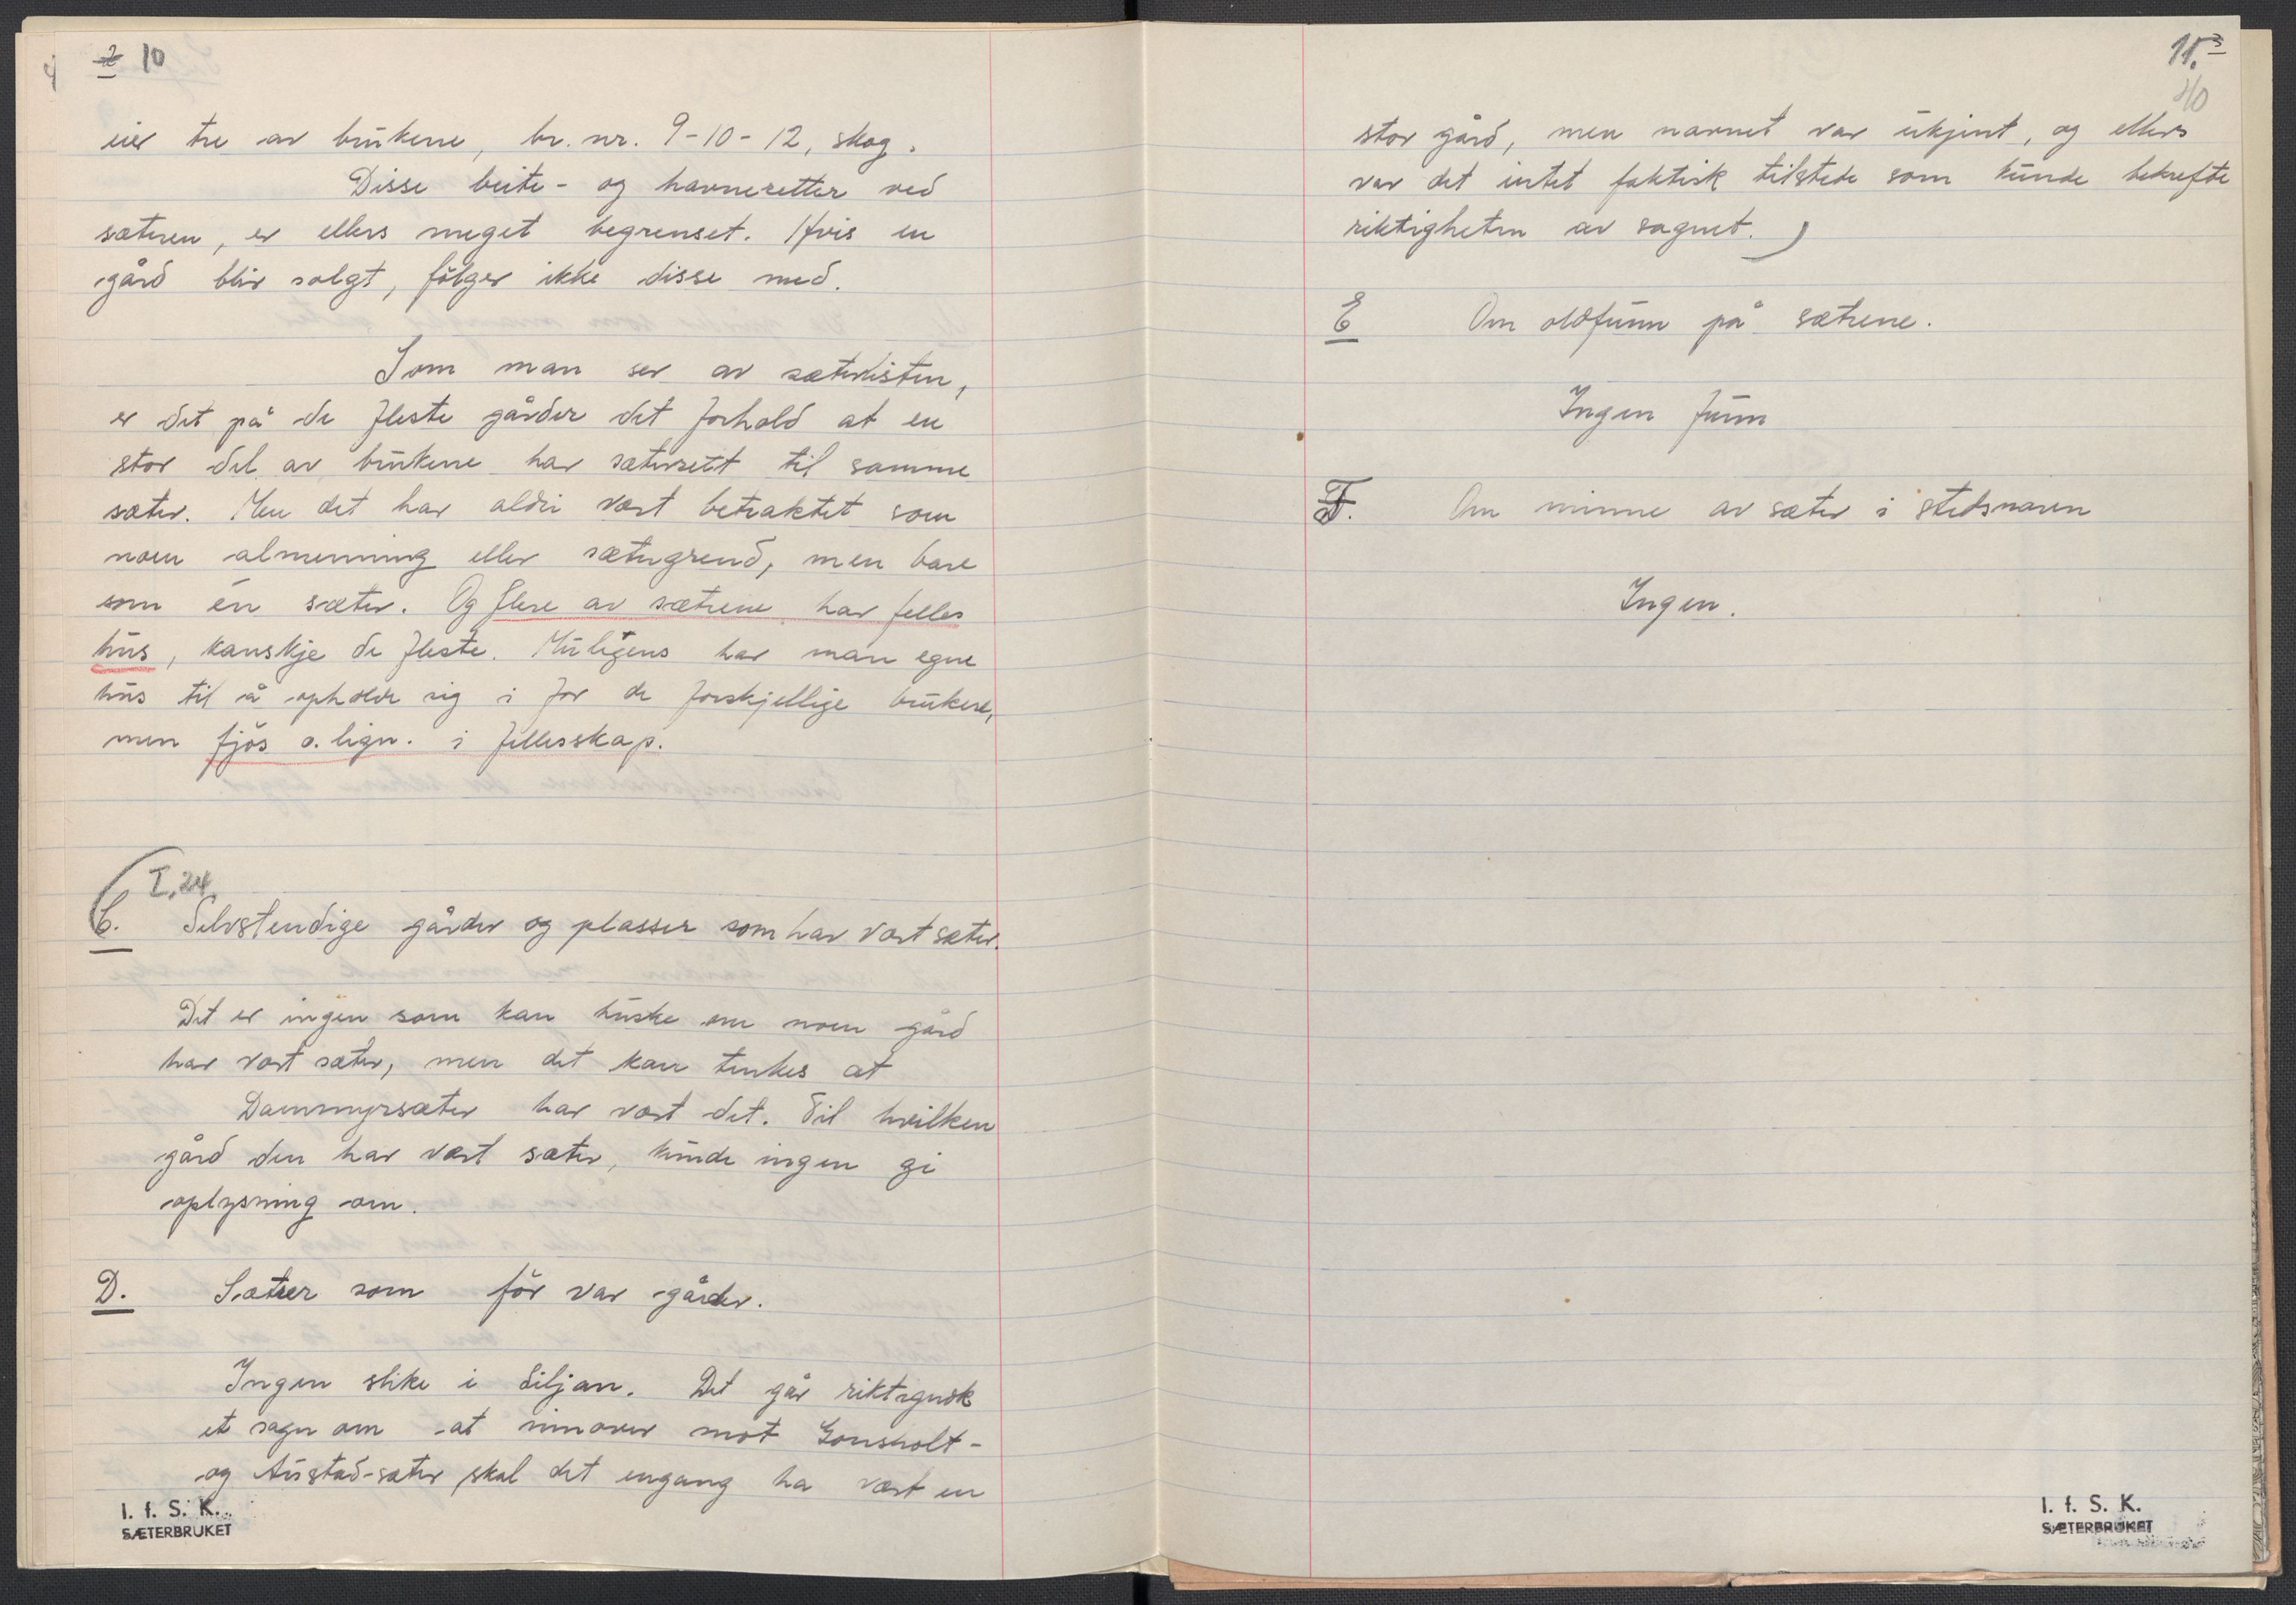 10
eier tre av brukene, br. nr. 9-10-12, skog.
Disse beite- og havneretter ved
sæteren, er ellers meget begrenset. Hvis en
gård blir solgt, følger ikke disse med.
Som man ser av sæterlisten,
er det på de fleste gårder det forhold at en
stor del av brukene har sæterrett til samme
sæter. Men det har aldri vært betraktet som
noen almenning eller sætergrend, men bare
som én sæter. Og flere av sætrene har felles
hus, kanskje de fleste. Muligens har man egne
hus til å opholde sig i for de forskjellige brukere,
men fjøs o. lign. i fellesskap.
I, 24.
C. Selvstendige gårder og plasser som har vært sæter.
Det er ingen som kan huske om noen gård
har vært sæter, men det kan tenkes at
Dammyrsæter har vært det. Til hvilken
gård den har vært sæter, kunde ingen gi
oplysning om.
D. Sætrer som før var gårder.
Ingen slike i Siljan. Det går riktignok
et sagn om at innover mot Gonsholt-
og Austad-sæter skal det engang ha vært en
I. f. S. K.
SÆTERBRUKET
11.
stor gård, men navnet var ukjent, og ellers
var det intet faktisk tilstede som kunde bekrefte
riktigheten av sagnet.)
E Om oldfunn på sætrene.
Ingen funn
F. Om minne av sæter i stedsnavn
Ingen.
I. f. S. K.
SÆTERBRUKET